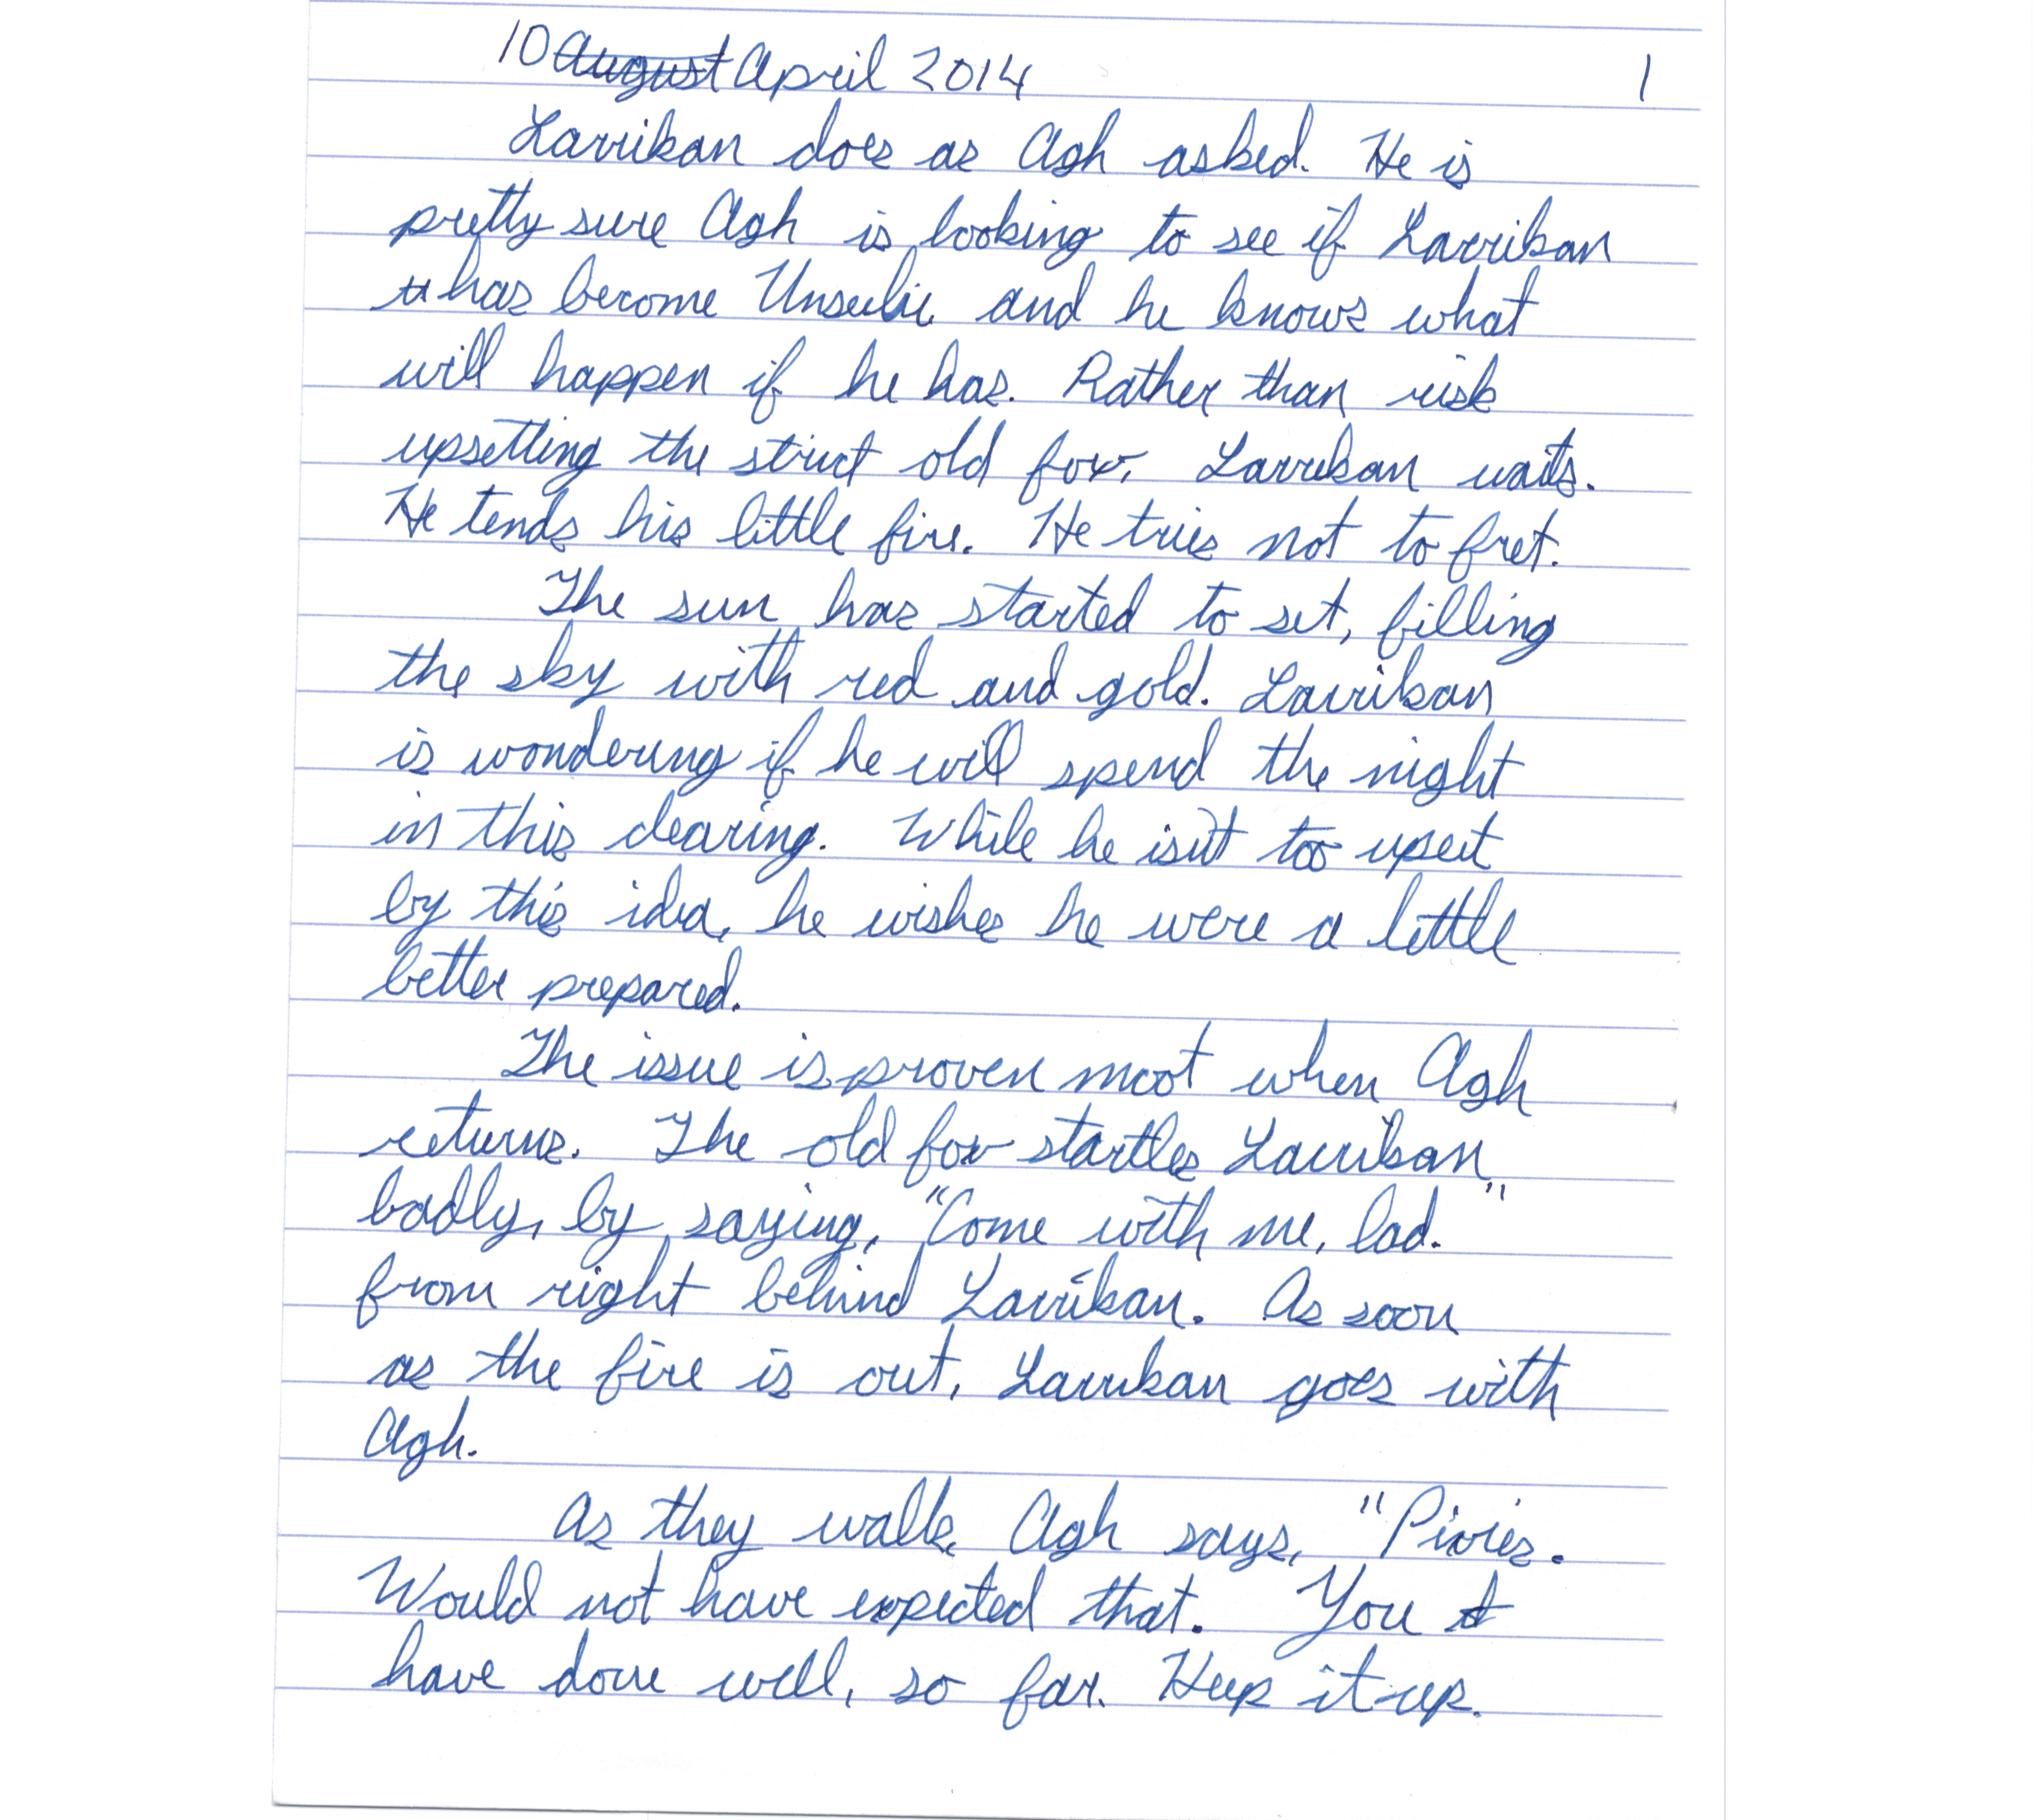 10 August April 2014 1
Larrikan does as Agh asked. He is
pretty sure Agh is looking to see if Larrikan
has become Unseelie and he knows what
will happen if he has. Rather than risk
upsetting the strict old fox, Larrikan waits.
He tends his little fire. He tries not to fret.
The sun has started to set, filling
the sky with red and gold. Larrikan
is wondering if he will spend the night
in this clearing. While he isn't too upset
by this idea, he wishes he were a little
better prepared.
The issue is proven moot when Agh
returns. The old fox startles Larrikan
badly, by saying, "Come with me, lad."
from right behind Larrikan. As soon
as the fire is out, Larrikan goes with
Agh.
As they walk, Agh says, "Pixies.
Would not have expected that. You
have done well, so far. Keep it up.